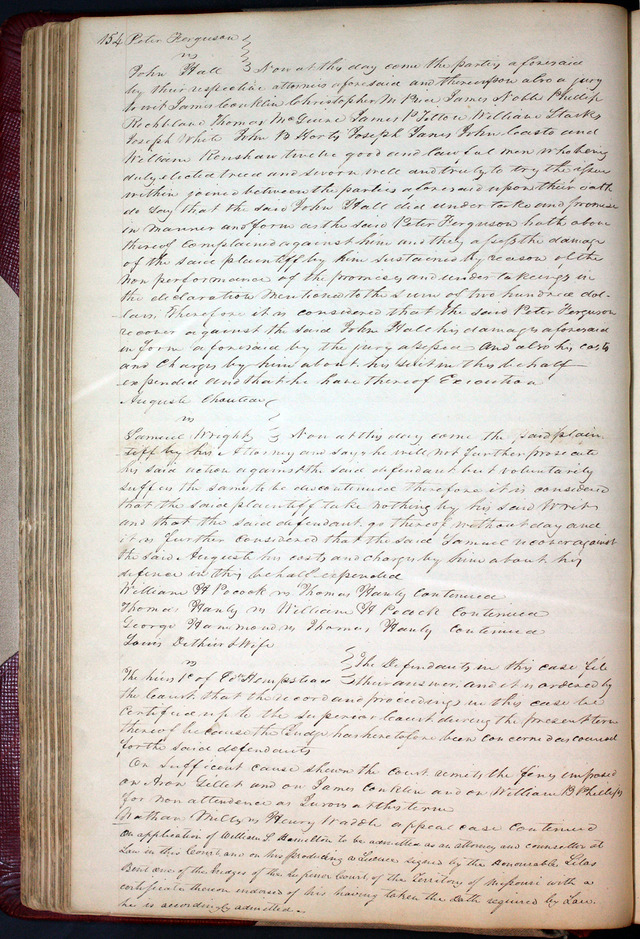 154 Peter Ferguson
vs
John Hall Now at this day come the parties aforesaid
by their respective attornies aforesaid and thereupon also a jury
towit James Conklin Christopher M Price James Noble Phillip
Rochblane Thomas McGuire James William Starks
Joseph White John B Hortz Joseph Janes John Coasto and
William Renshaw twelve good and lawful men who being
duly elected tried and sworn well and truly to try the issue
within joined between the parties aforesaid upon their oath
do say that the said John Hall did undertake and promise
in manner and form as the said Peter Ferguson hath above
thereof complained against him and they assess the damage
of the said plaintiff by him sustained by reason of the
non performance of the promises and undertakings in
the declaration mentioned to the sum of two hundred dol-
lars, Therefore it is considered that the said Peter Ferguson
recover against the said John Hall his damages aforesaid
in form aforesaid by the jury assessed and also his costs
and Charges by him about his suit in this behalf
expended and that he have thereof Execution
Auguste Chouteau
vs
Samuel Wright Now at this day come the said plain
tiff by his Attorney and says he will not further prosecute
his said action against the said defendant but voluntarily
suffers the same to be discontinued therefore it is considered
that the said plaintiff take nothing by his said Writ
and that the said defendant go thereof without day and
it is further considered that the said Samuel recover against
the said Auguste his costs and charges by him about his
defence in this behalf expended
William H Pocock vs Thomas Hanly Continued
Thomas Hanly vs William H Pocock Continued
George Hammond vs Thomas Hanly Continued
Louis Dethier & Wife
vs
The heirs &c of Ed Hempstead The Defendants in this case file
their answer and it is ordered by
the Court that the record and proceedings in this case be
certified up to the superior Court during the present term
thereof because the Judge has heretofore been concerned as counsel
for the said defendants
On sufficient cause shewn the court remits the fines imposed
on Aron Gellet and on James Conklin and on William B Phillips
for non attendance as Jurors at this term
Nathan Mills vs Henry Waddle appeal case continued
On application of William S Hamilton to be admitted as an attorney and counsellor at
Law in this Court and on his producing a Licence signed by the Honourable Silas
Bent one of the Judges of the Superior Court of the Territory of Missouri with a
certificate thereon endorsed of his having taken the Oath required by Law
he is accordingly admitted.